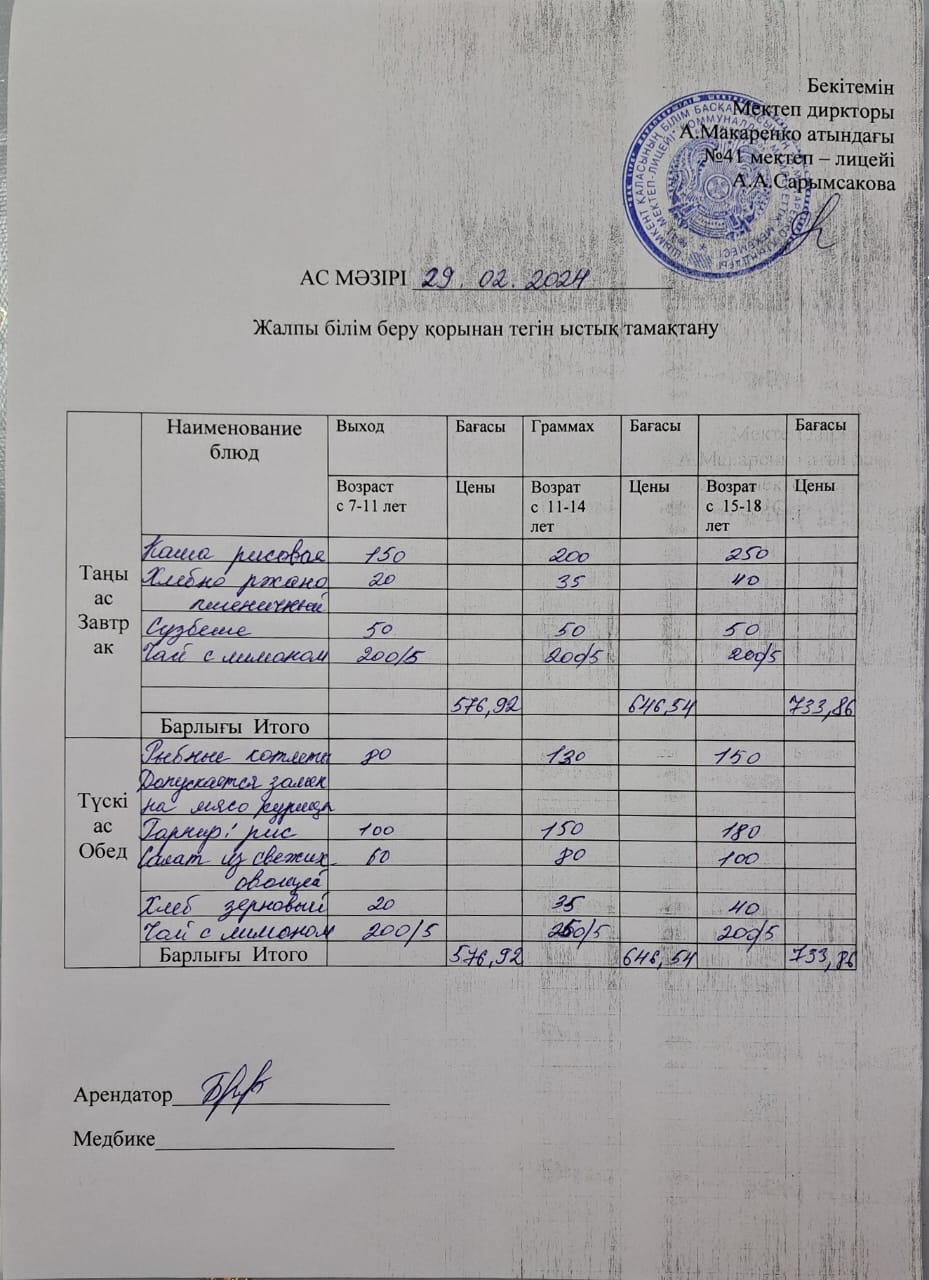 Бекітемін
Мектеп диркторы
А.Макаренко атындағы
№41 мектеп – лицейі
А.А.Сарымсакова
АС МӘЗІРІ 29.02.2024
Жалпы білім беру қорынан тегін ыстық тамақтану
Наименование блюд Выход Бағасы Граммах Бағасы Бағасы
Возраст с 7-11 лет Цены Возрат с 11-14 лет Цены Возрат с 15-18 лет Цены
Таңы ас Завтрак
Каша рисовая 150 200 250
Хлебно ржано 20 35 40
пшеничный
Сузбеше 50 50 50
Чай с лимоном 200/5 200/5 200/5
576,92 646,54 733,86
Барлығы Итого
Түскі ас Обед
Рыбные котлеты 80 130 150
Допускается замен
на мясо курицы
Гарнир: рис 100 150 180
Салат из свежих 60 80 100
овощей
Хлеб зерновый 20 35 40
Чай с лимоном 200/5 200/5 200/5
Барлығы Итого 576,92 646,54 733,86
Арендатор
Медбике